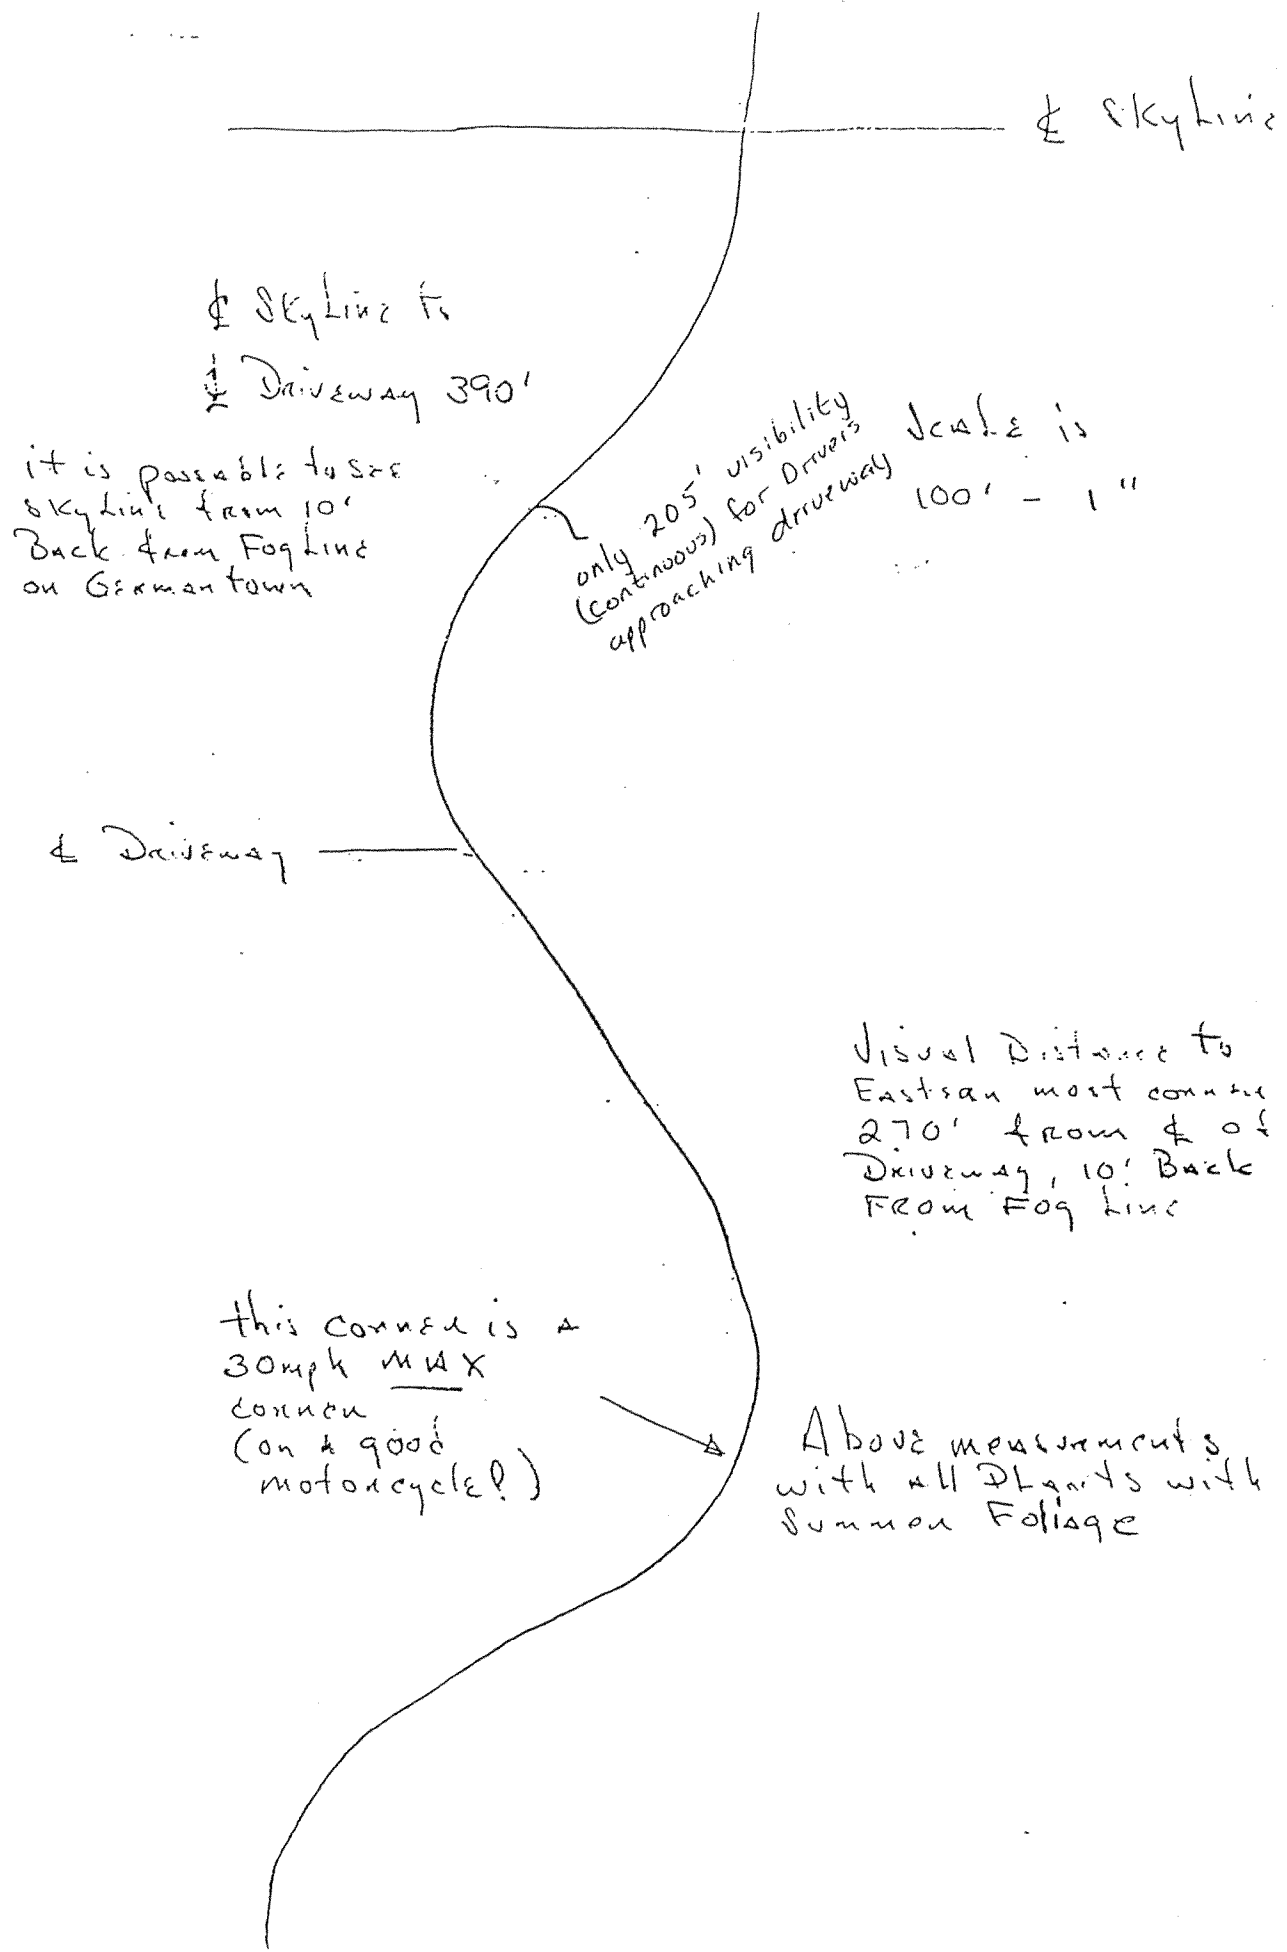 ℄ SkyLine
℄ SkyLine to
℄ Driveway 390'
it is possable to see
skyLine from 10'
Back from Fog Line
on Germantown
only 205' visibility
(continuous) for Drivers
approaching driveway
Scale is
100' - 1"
℄ Driveway
Visual Distance to
Eastern most corner
270' from ℄ of
Driveway, 10' Back
From Fog Line
this corner is a
30mph MAX
corner
(on a good
motorcycle?)
Above measurements
with all PLants with
Summer Foliage